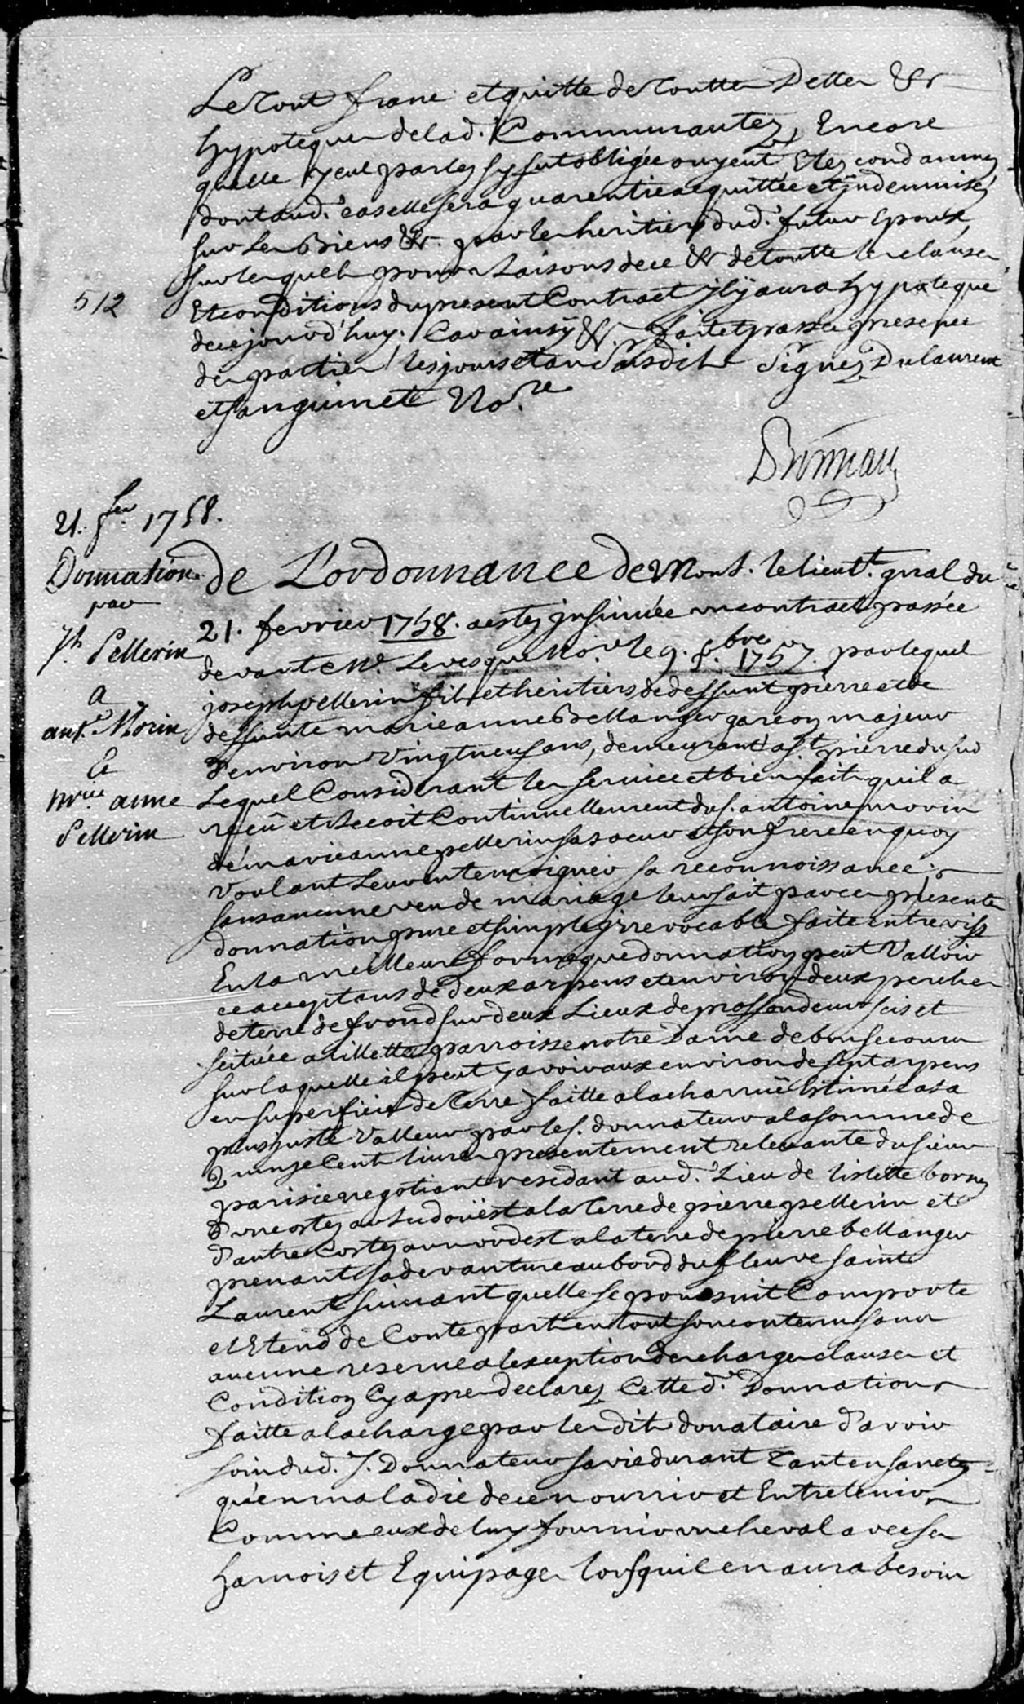 Le tout franc et quitte de toutte dette &r
hypoteque de lad. Communautez, Encore
quelle y eut parlez sy fut obligée ou y eut Etez condamnez
dont aud. cas elle sera guarentie acquittée et indemnisez
sur les Biens &r par les heritiers dud. futur Epoux,
sur lesquels pour Raisons de ce &r de toutte les clauses
512
Et conditions du present Contract Il y aura hypoteque
de ce jourd'huy. Car ainsy &r fait et passez presence
des parties les jours et an susdits Signez Dulaurent
et sanguinet Nore.
21. fer 1758.
Donnation
par
Jh. Pellerin
a
ant. Morin
Et
mrie anne
Pellerin
de L'ordonnance de Mons. le lieut. gnal du
21. fevrier 1758. a estez insinuée un contract passée
devant Me. Levesque Nore le 9. 8bre 1757. par lequel
joseph pellerin fils et heritiers de deffunt pierre et de
deffunte marie anne Bellanger garçon majeur
d'environ vingt neuf ans, demeurant a St. pierre du sud
Lequel Considerant les service et bien fait qu'il a
reçû et Reçoit Continuellement du s. antoine morin
de marie anne pellerin sa soeur et son frere en quoy
voulant leur en temoigner sa reconnoissance
sans aucune veu de mariage leur fait par ces presente
donnation pure et simple irrevocable faite entre vifs
En la meilleure forme que donnation peut Valloir
ce acceptans de deux arpens et environ deux perches
de terre de frond sur deux Lieux de proffondeur sis et
scituée a lillette parroisse notre Dame de bonsecour
sur laquelle il peut y avoir aux environ de sept arpens
en superficie de Terre faitte a la charruë Estimée a sa
plus juste Valleur par le s. donnateur a la somme de
Quinze Cent livres presentement relevante du sieur
parisie negotiant residant aud. Lieu de lislette bornez
d'une costez au sudouest a la terre de pierre pellerin et
d'autre Costez au nordest a la terre de pierre bellanger
prenant sa devanture au bord du fleuve saint
Laurent suivant quelle se poursuit Comporte
et Etend de Toute part en tout son contenu sans
aucune reserve a lexception des charges clauses et
Condition Cy apres declarez Cette d. Donnation
faitte a la charge par les dit donataire d'avoir
soin dud. s. Donnateur sa vie durant Tant en santez
qu'en maladie de le nourrir et Entretenir
Comme eux de luy fournir un cheval avec ses
harnois et Equipage lorsqu'il en aura besoin